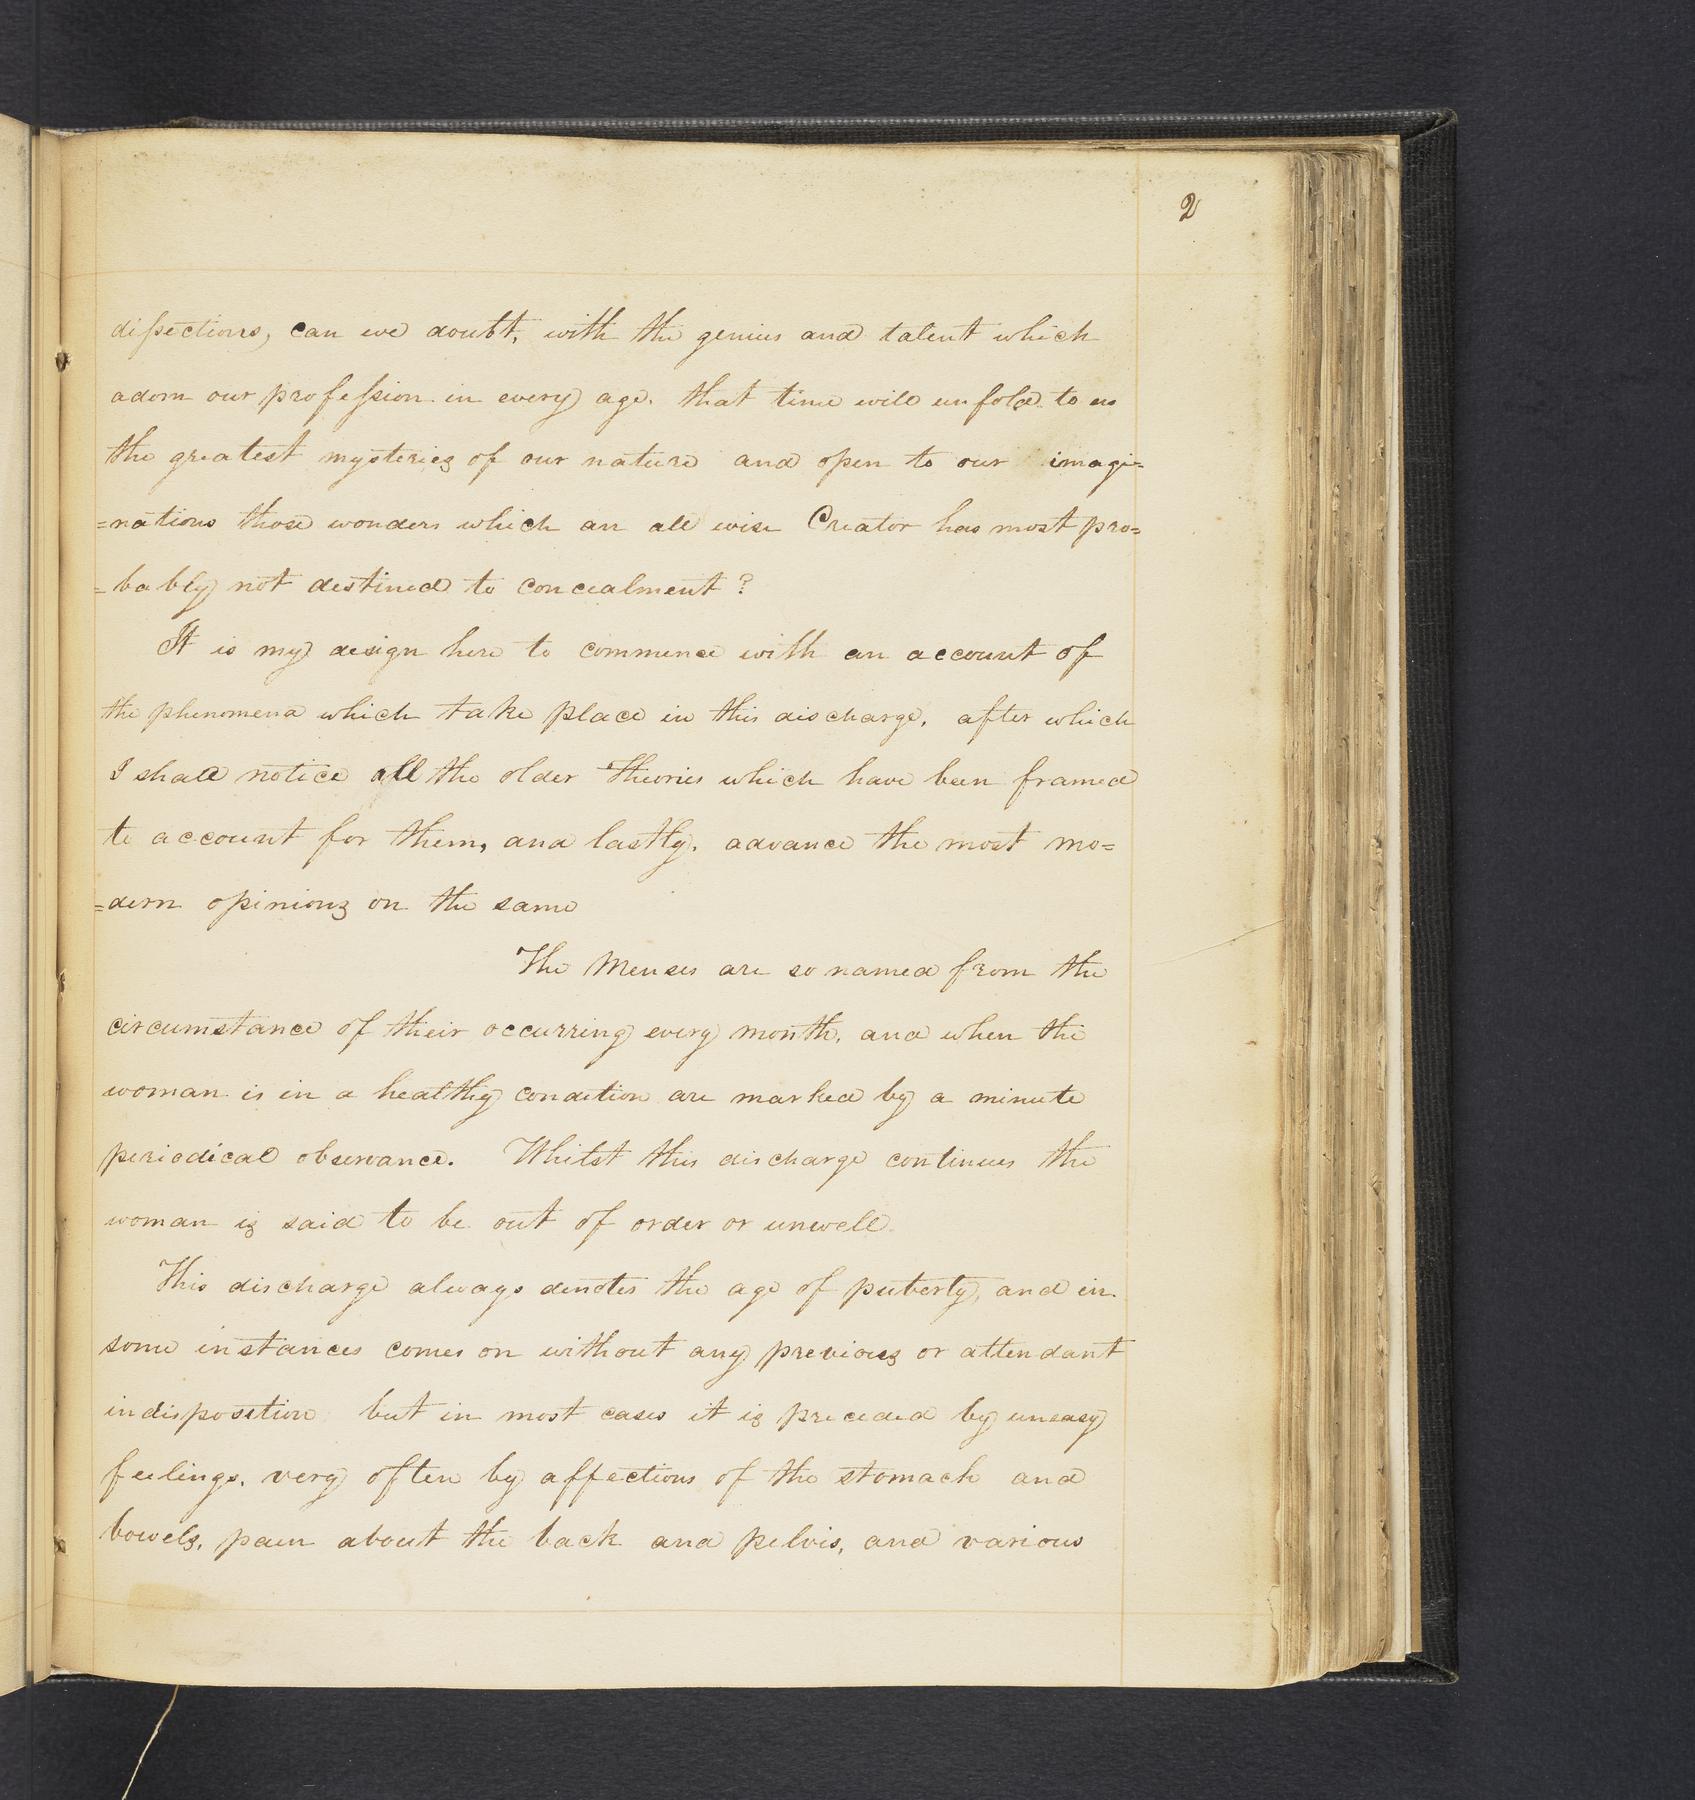 2
dissections, can we doubt, with the genius and talent which
adorn our profession in every age, that time will unfold to us
the greatest mysteries of our nature and open to our imagi=
=nations those wonders which an all wise Creator has most pro=
=bably not destined to concealment?
It is my design here to commence with an account of
the phenomena which take place in this discharge, after which
I shall notice all the older Theories which have been framed
to account for them, and lastly, advance the most mo=
=dern opinions on the same
The Menses are so named from the
circumstance of their occurring every month, and when the
woman is in a healthy condition are marked by a minute
periodical observance. Whilst this discharge continues the
woman is said to be out of order or unwell.
This discharge always denotes the age of puberty, and in
some instances comes on without any previous or attendant
indisposition but in most cases it is preceded by uneasy
feelings, very often by affections of the stomach and
bowels, pain about the back and pelvis, and various